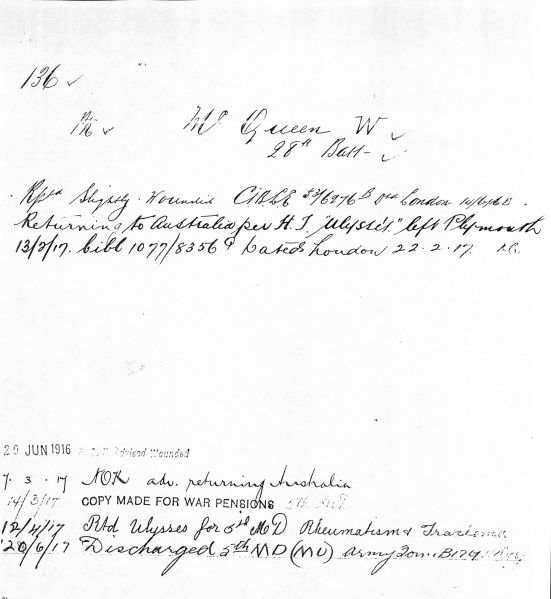 136 ✓
Pte ✓ Mc Queen W ✓
28th Batt - ✓
Rptd Slightly Wounded Cable dated London
Returning to Australia per H.T. "Ulysses" left Plymouth
13/2/17. Cible 1077/8356 Dated London 22.2.17.
29 JUN 1916 N.O.K. Advised Wounded
7.3.17 NOK adv. returning Australia
14/3/17 COPY MADE FOR WAR PENSIONS 5th M.D
12/4/17 Rtd Ulysses for 5th MD Rheumatism &
20/6/17 Discharged 5th MD (MU) Army Form B179